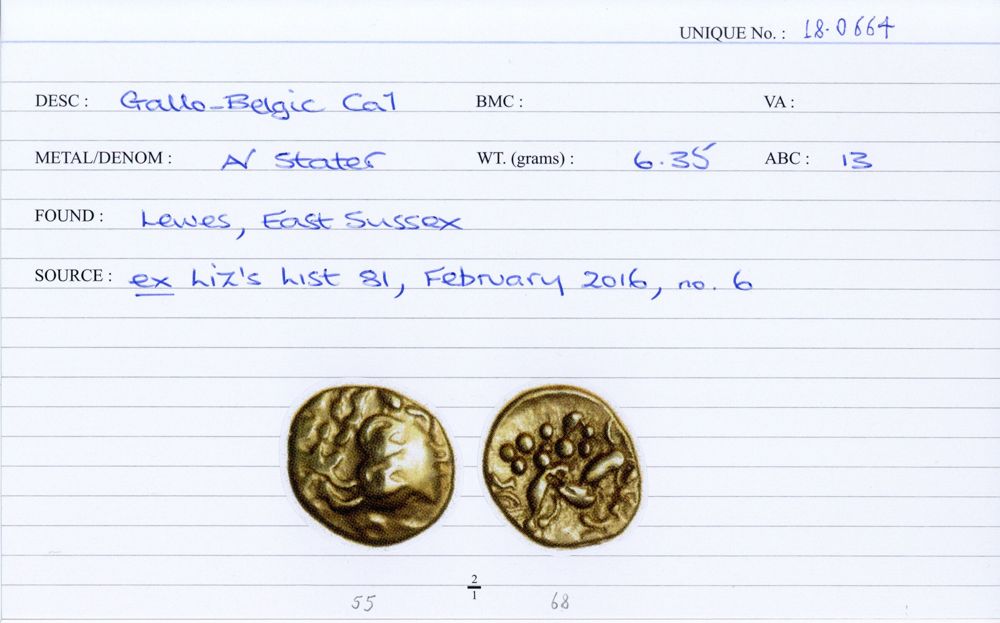 UNIQUE No. : 18.0664
DESC : Gallo-Belgic Ca1 BMC : VA :
METAL/DENOM : AV Stater WT. (grams) : 6.35 ABC : 13
FOUND : Lewes, East Sussex
SOURCE : ex Liz's List 81, February 2016, no. 6
2
1
55 68